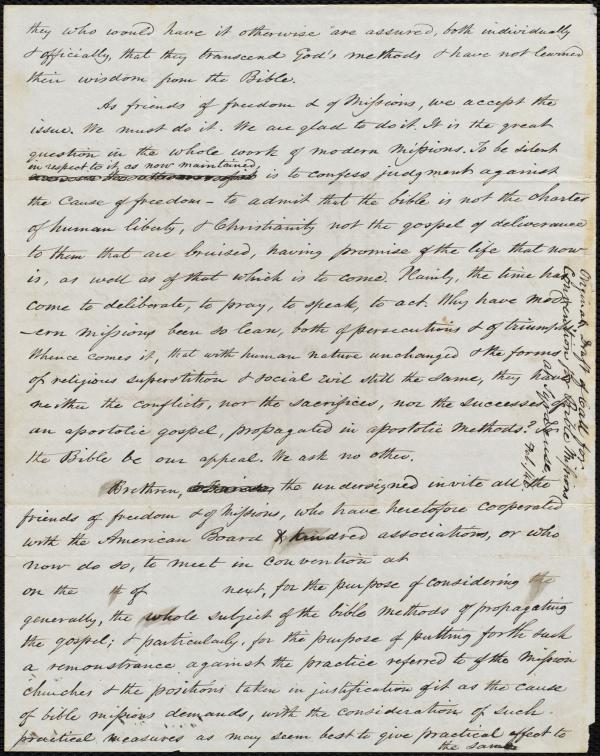 they who would have it otherwise are assured, both individually
& officially, that they transcend God's methods & have not learned
their wisdom from the Bible.
As friends of freedom & of Missions, we accept the
issue. We must do it. We are glad to do it. It is the great
question in the whole work of modern missions. To be silent
in respect to it, as now maintained,
is to confess judgment against
the cause of freedom - to admit that the bible is not the charter
of human liberty, & Christianity not the gospel of deliverance
to them that are bruised, having promise of the life that now
is, as well as of that which is to come. Plainly, the time has
come to deliberate, to pray, to speak, to act. Why have mod
-ern missions been so lean, both of persecutions & of triumphs?
Whence comes it, that with human nature unchanged & the forms
of religious superstition & social evil still the same, they have
neither the conflicts, nor the sacrifices, nor the successes of
an apostolic gospel, propagated in apostolic methods?
the Bible be our appeal. We ask no other.
Brethren, the undersigned invite all the
friends of freedom & of Missions, who have heretofore cooperated
with the American Board & kindred associations, or who
now do so, to meet in convention at
on the th of next, for the purpose of considering the
generally, the whole subject of the bible methods of propagating
the gospel; & particularly, for the purpose of putting forth such
a remonstrance against the practice referred to of the Mission
churches & the positions taken in justification of it as the cause
of bible missions demands, with the consideration of such
practical measures as may seem best to give practical effect to
the same
Original Draft of Call for
Convention for Bible Missions
at Syracuse,
Feb/46